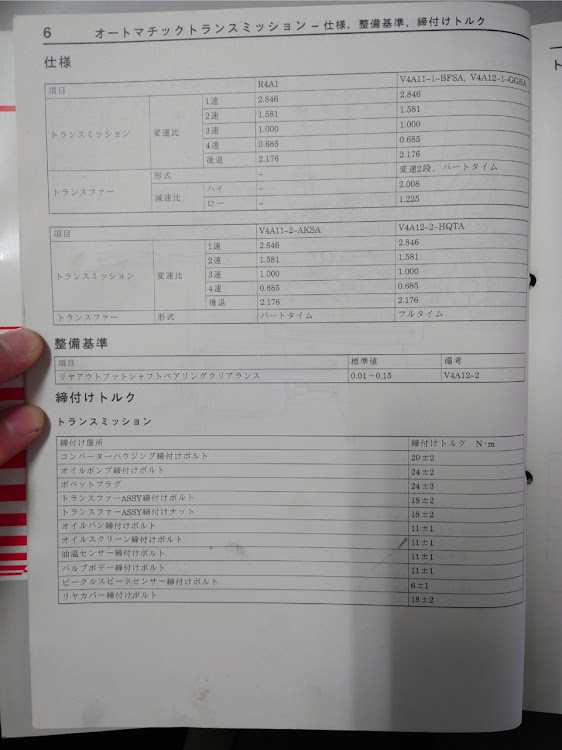 6 オートマチックトランスミッション－仕様、整備基準、締付けトルク
仕様
項目 R4A1 V4A11-1-BFSA, V4A12-1-GGSA
トランスミッション 変速比 1速 2.846 2.846
2速 1.581 1.581
3速 1.000 1.000
4速 0.685 0.685
後退 2.176 2.176
トランスファー 形式 － 変速2段, パートタイム
減速比 ハイ － 2.008
ロー － 1.225
項目 V4A11-2-AKSA V4A12-2-HQTA
トランスミッション 変速比 1速 2.846 2.846
2速 1.581 1.581
3速 1.000 1.000
4速 0.685 0.685
後退 2.176 2.176
トランスファー 形式 パートタイム フルタイム
整備基準
項目 標準値 備考
リヤアウトプットシャフトベアリングクリアランス 0.01～0.15 V4A12-2
締付けトルク
トランスミッション
締付け箇所 締付けトルク N·m
コンバーターハウジング締付けボルト 20±2
オイルポンプ締付けボルト 24±2
ポペットプラグ 24±3
トランスファーASSY締付けボルト 18±2
トランスファーASSY締付けナット 18±2
オイルパン締付けボルト 11±1
オイルスクリーン締付けボルト 11±1
油温センサー締付けボルト 11±1
バルブボデー締付けボルト 11±1
ビークルスピードセンサー締付けボルト 6±1
リヤカバー締付けボルト 18±2
ト